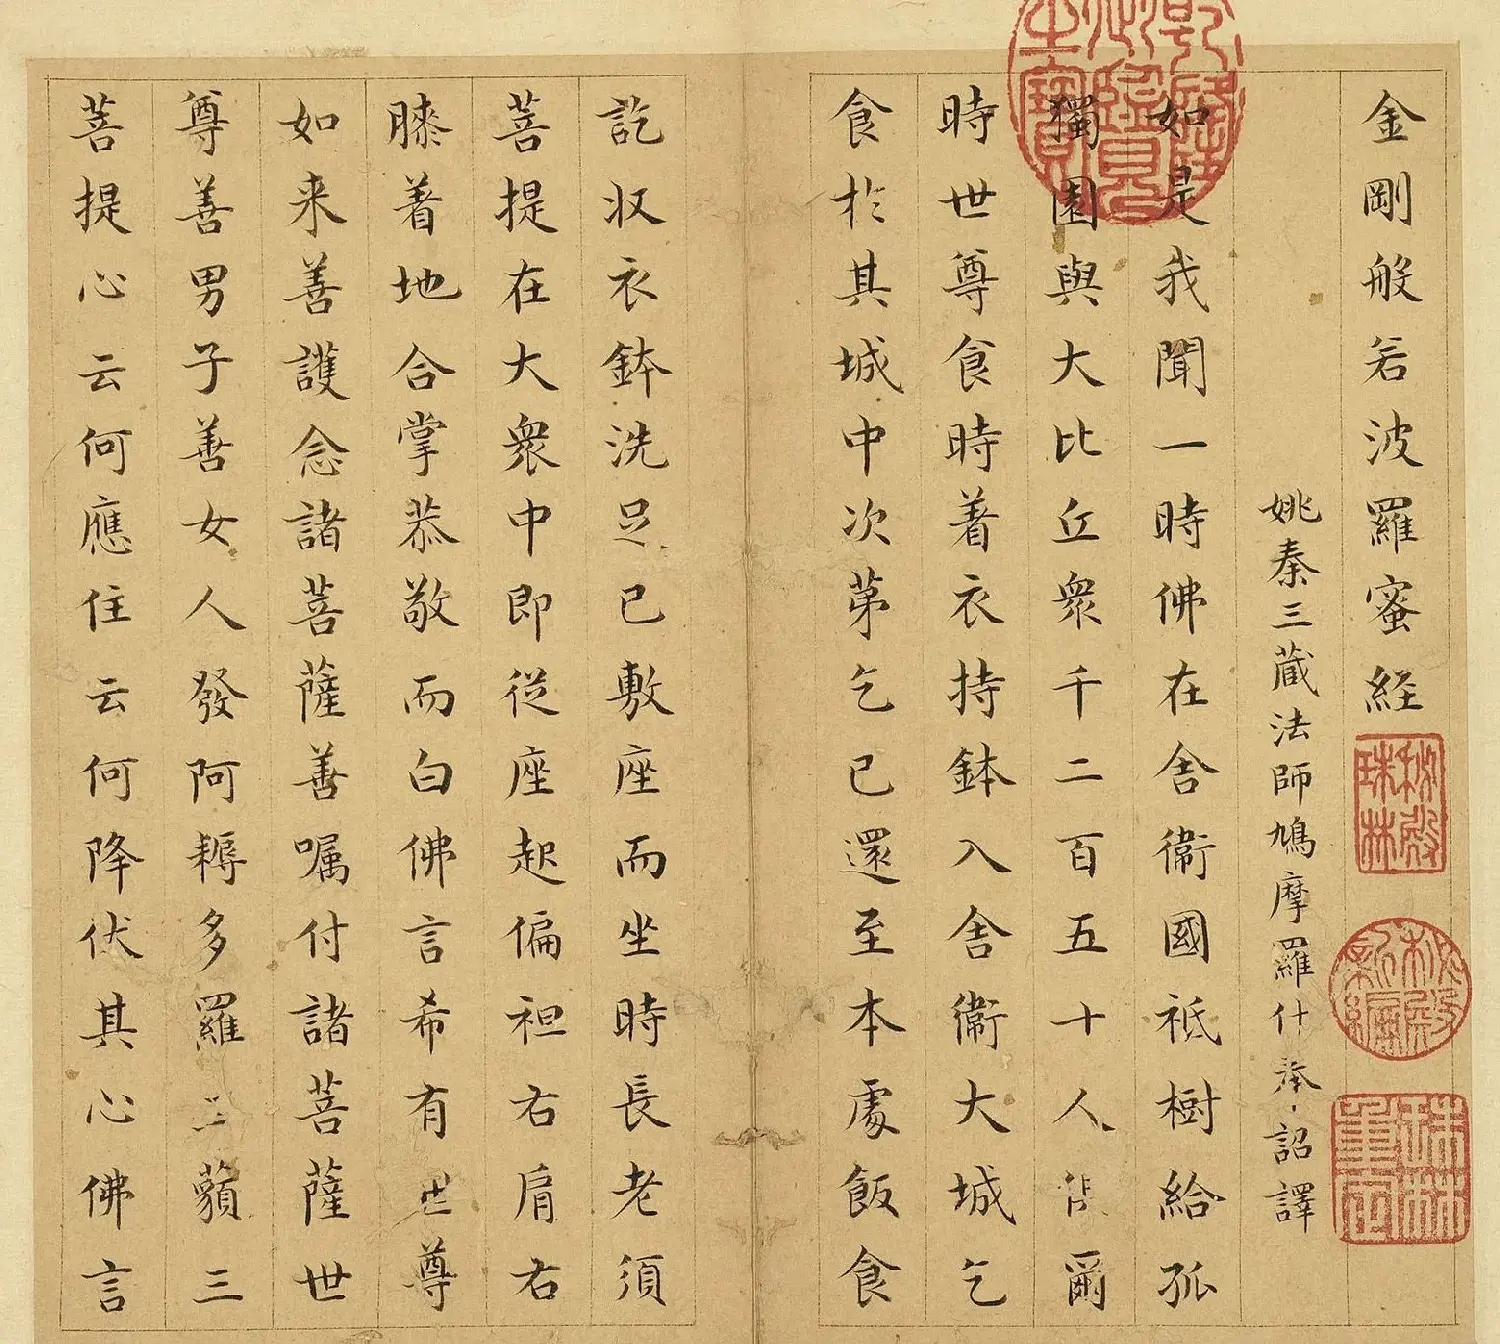 金剛般若波羅蜜經
姚秦三藏法師鳩摩羅什奉詔譯
如是我聞一時佛在舍衛國祇樹給孤
獨園與大比丘衆千二百五十人俱爾
時世尊食時着衣持鉢入舍衛大城乞
食於其城中次第乞已還至本處飯食
訖收衣鉢洗足已敷座而坐時長老須
菩提在大衆中即從座起偏袒右肩右
膝着地合掌恭敬而白佛言希有世尊
如来善護念諸菩薩善囑付諸菩薩世
尊善男子善女人發阿耨多羅三藐三
菩提心云何應住云何降伏其心佛言
乾隆御覽之寶
秘殿珠林
秘殿新編
珠林重定